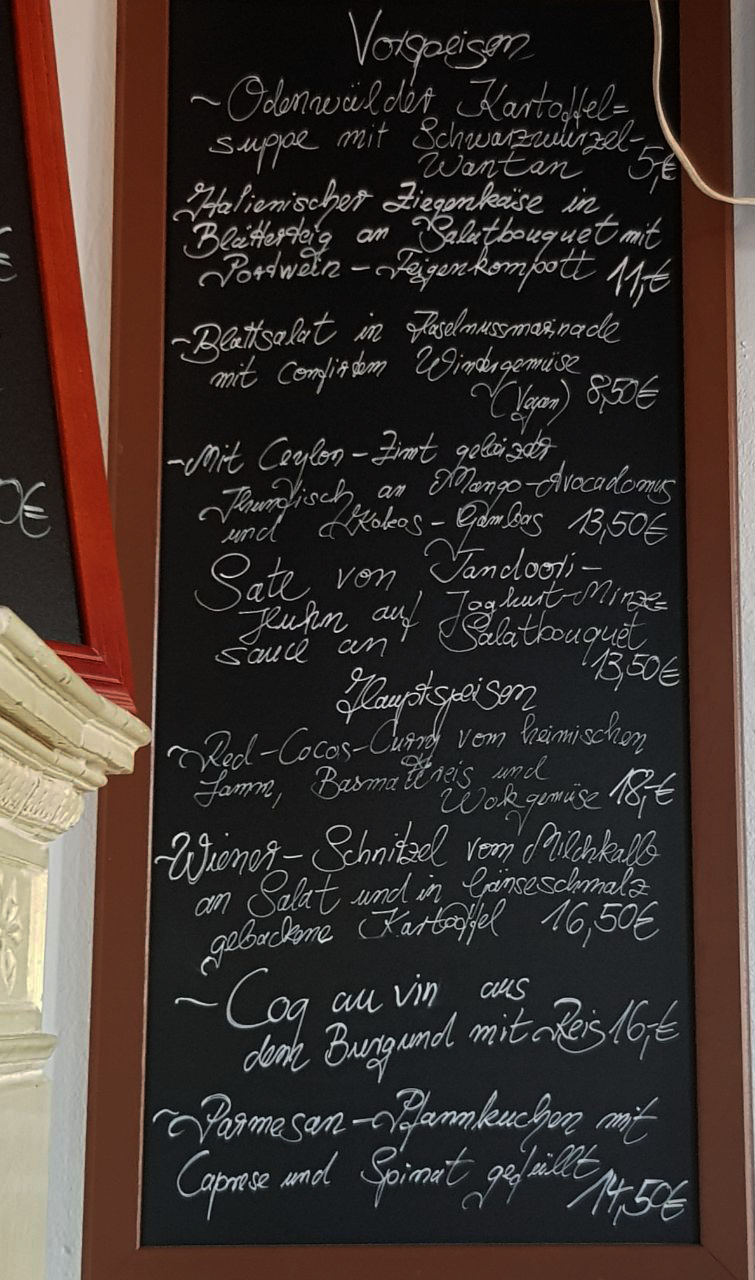 Vorspeisen
~Odenwälder Kartoffel=
suppe mit Schwarzwurzel-
Wantan 5,€
Italienischer Ziegenkäse in
Blätterteig an Salatbouquet mit
Portwein-Feigenkompott 11,€
~Blattsalat in Haselnussmarinade
mit confirtem Wintergemüse
(Vegan) 8,50€
~Mit Ceylon-Zimt gebeizter
Thunfisch an Mango-Avocadomus
und Kokos-Gambas 13,50€
Sate von Tandoori-
Huhn auf Joghurt-Minze=
sauce an Salatbouquet
13,50€
Hauptspeisen
~Red-Cocos-Curry vom heimischen
Lamm, Basmatireis und
Wokgemüse 18,€
~Wiener-Schnitzel vom Milchkalb
an Salat und in Gänseschmalz
gebackene Kartoffel 16,50€
~Coq au vin aus
dem Burgund mit Reis 16,€
~Parmesan-Pfannkuchen mit
Caprese und Spinat gefüllt
14,50€
€
0€